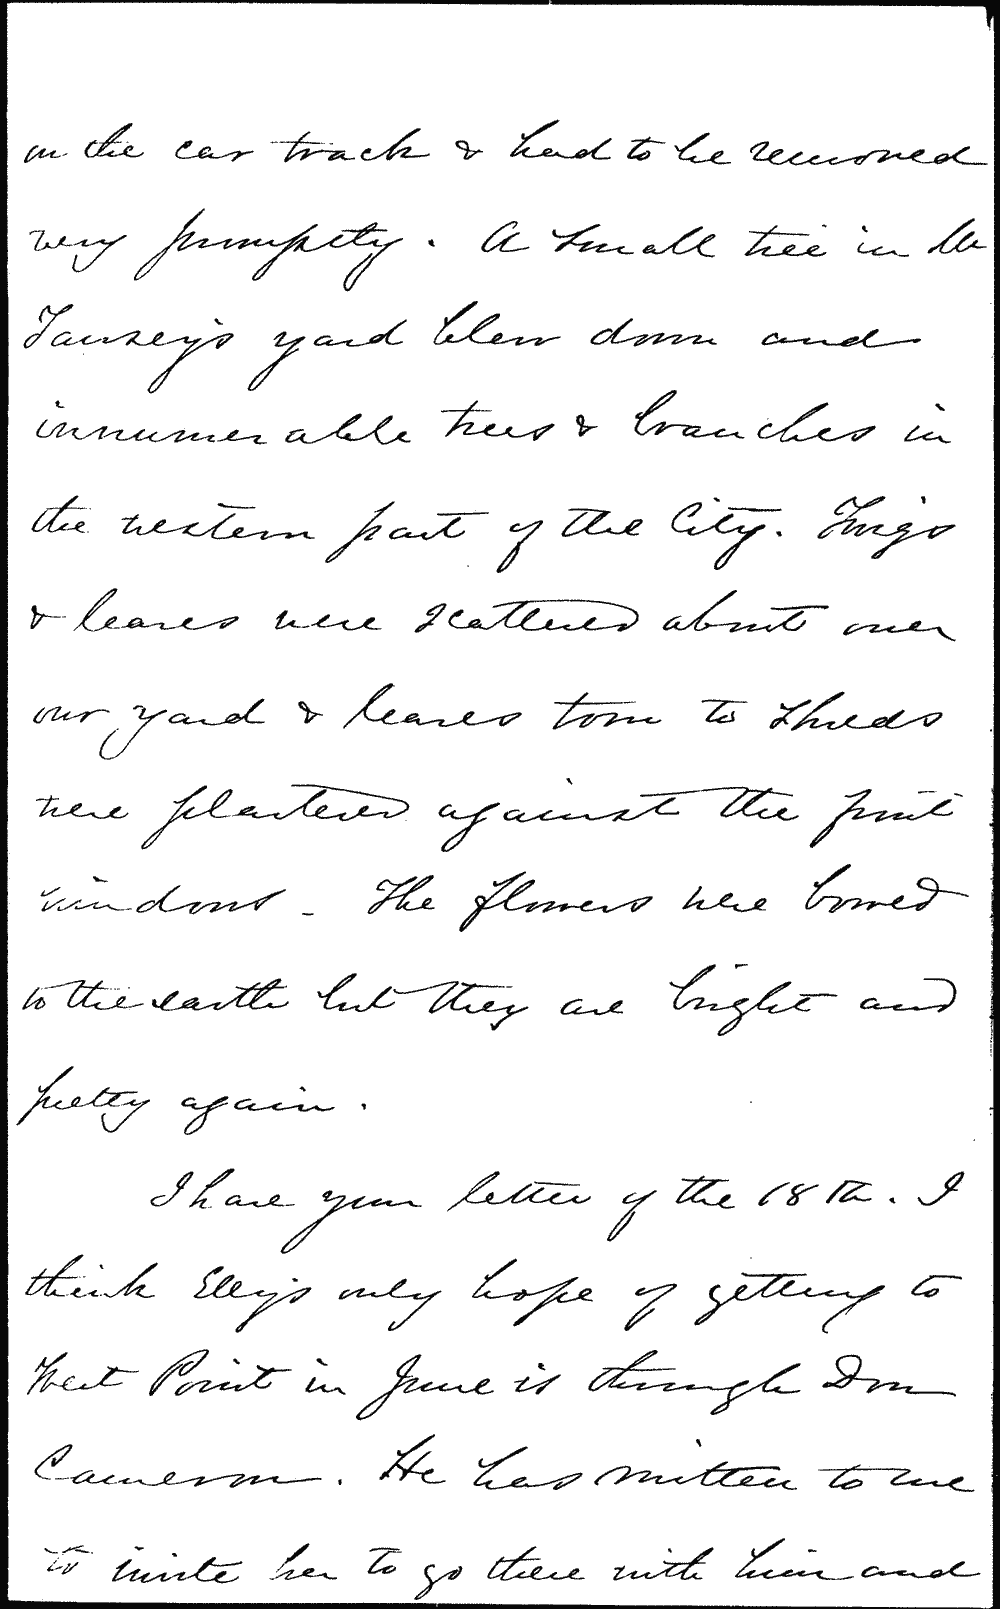 on the car track & had to be removed
very promptly. A small tree in Mr
Tawsey's yard blew down and
innumerable trees & branches in
the western part of the City. Twigs
& leaves were scattered about over
our yard & leaves torn to shreds
were plastered against the front
windows - The flowers were bowed
to the earth but they are bright and
pretty again.
I have your letter of the 18th. I
think Elly's only hope of getting to
West Point in June is through Don
Cameron. He has written to me
to invite her to go there with him and